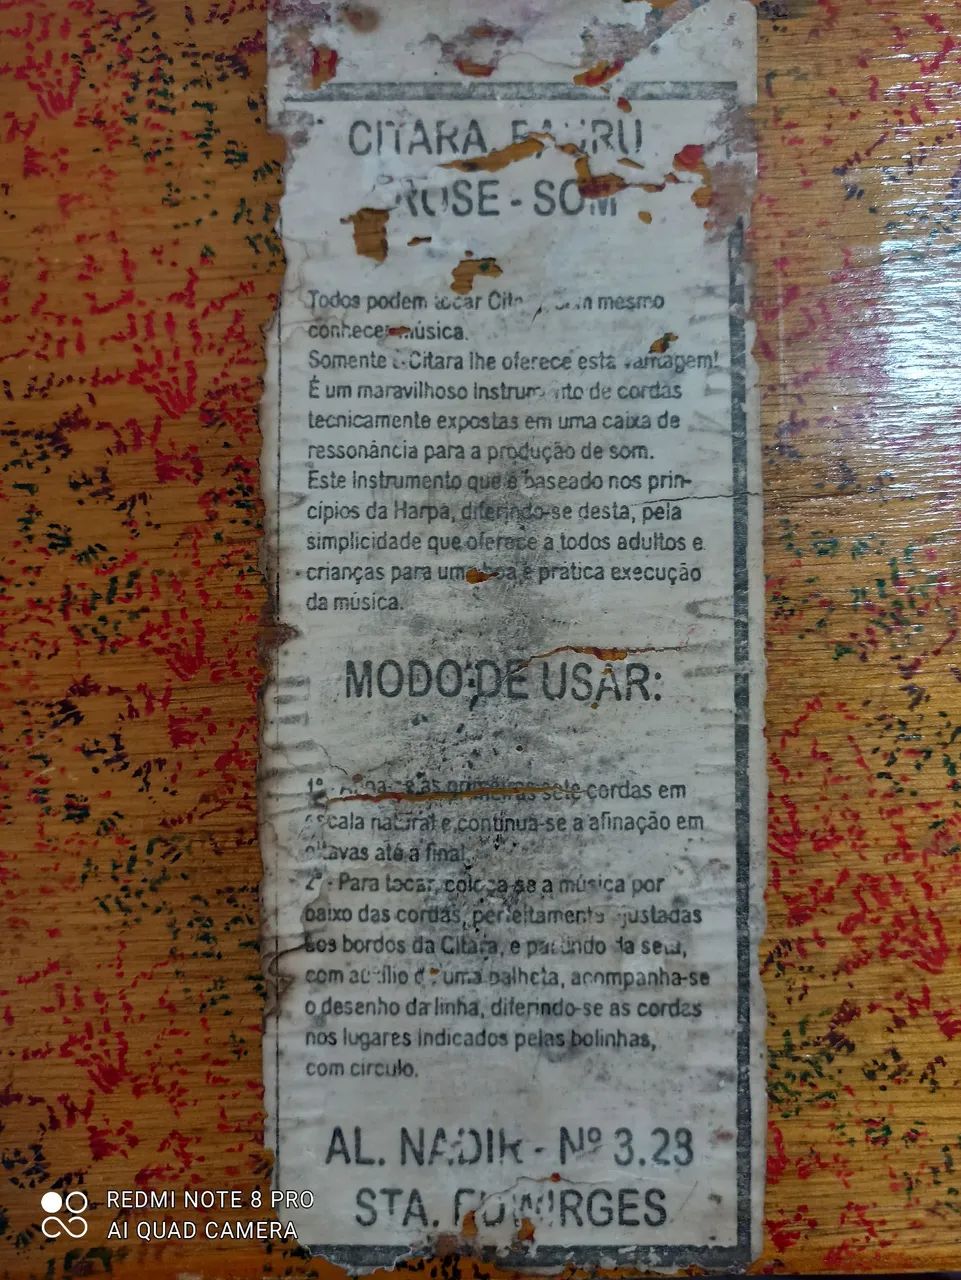 CITARA
ROSE - SOM
Todos podem tocar mesmo
conhecer música.
Somente Citara lhe oferece esta vantagem!
É um maravilhoso instrumento de cordas
tecnicamente expostas em uma caixa de
ressonância para a produção de som.
Este instrumento que é baseado nos prin-
cípios da Harpa, diferindo-se desta, pela
simplicidade que oferece a todos adultos e
crianças para uma boa e prática execução
da música.
MODO DE USAR:
1º - as primeiras sete cordas em
escala natural e continua-se a afinação em
oitavas até a final.
2º - Para tocar, coloca-se a música por
baixo das cordas, perfeitamente ajustadas
aos bordos da Citara, e partindo da seta,
com auxílio de uma palheta, acompanha-se
o desenho da linha, diferindo-se as cordas
nos lugares indicados pelas bolinhas,
com circulo.
AL. NADIR - Nº 3.23
STA.
REDMI NOTE 8 PRO
AI QUAD CAMERA